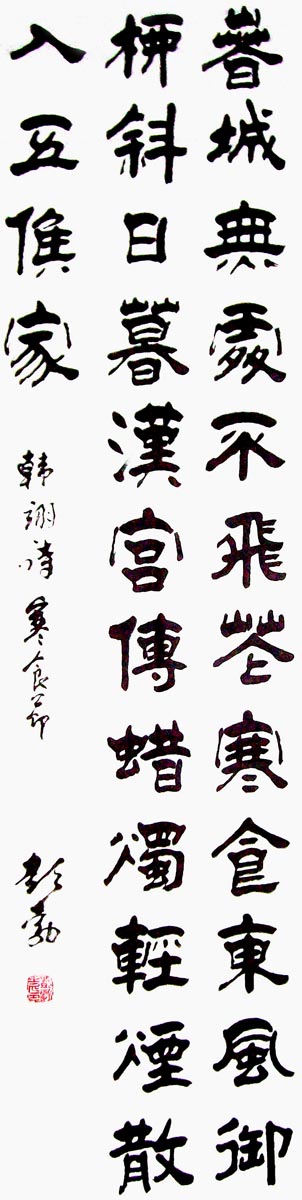 春城無處不飛花寒食東風御
柳斜日暮漢宮傳蜡燭輕煙散
入五侯家
韩翃诗寒食节
彭勃